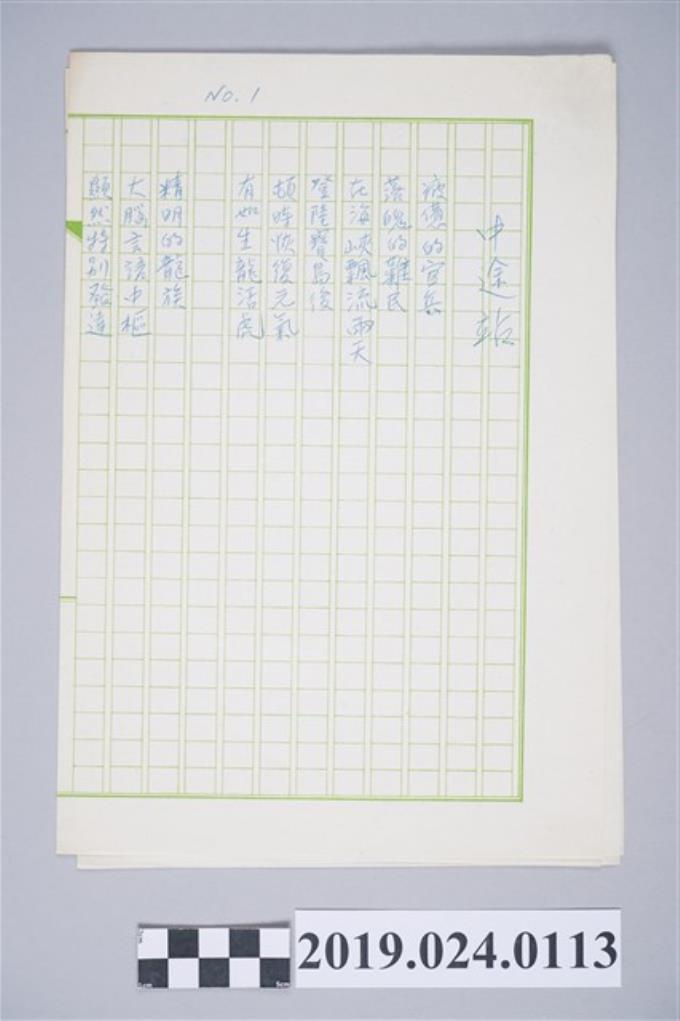 No. 1
中途站
疲憊的官兵
落魄的難民
在海峽飄流兩天
登陸寶島後
頓時恢復元氣
有如生龍活虎
精明的龍族
大腦言語中樞
顯然特別發達
2019.024.0113